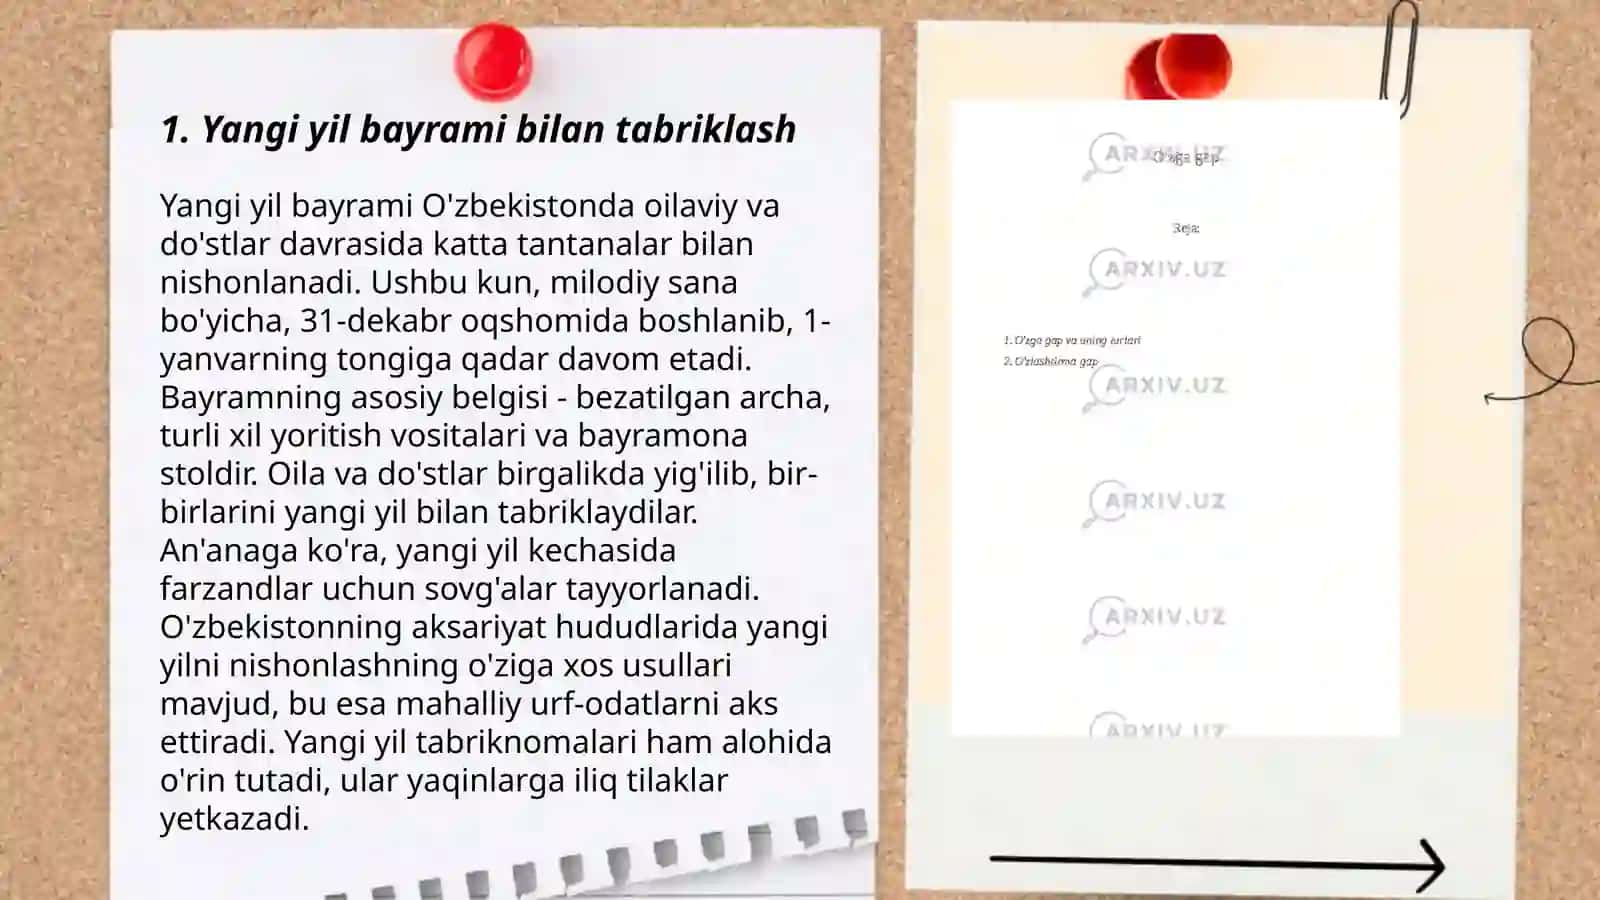 1. Yangi yil bayrami bilan tabriklash
Yangi yil bayrami O'zbekistonda oilaviy va
do'stlar davrasida katta tantanalar bilan
nishonlanadi. Ushbu kun, milodiy sana
bo'yicha, 31-dekabr oqshomida boshlanib, 1-
yanvarning tongiga qadar davom etadi.
Bayramning asosiy belgisi - bezatilgan archa,
turli xil yoritish vositalari va bayramona
stoldir. Oila va do'stlar birgalikda yig'ilib, bir-
birlarini yangi yil bilan tabriklaydilar.
An'anaga ko'ra, yangi yil kechasida
farzandlar uchun sovg'alar tayyorlanadi.
O'zbekistonning aksariyat hududlarida yangi
yilni nishonlashning o'ziga xos usullari
mavjud, bu esa mahalliy urf-odatlarni aks
ettiradi. Yangi yil tabriknomalari ham alohida
o'rin tutadi, ular yaqinlarga iliq tilaklar
yetkazadi.
ARXIV.UZ
Reja:
ARXIV.UZ
1. O'zga gap va uning turlari
2. O'zlashtirma gap
ARXIV.UZ
ARXIV.UZ
ARXIV.UZ
ARXIV.UZ